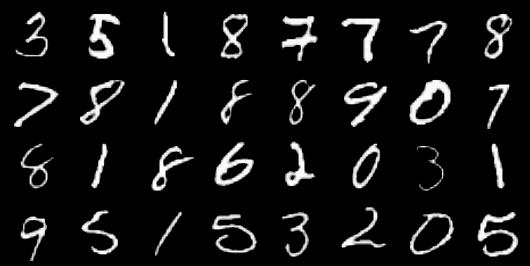 3 5 1 8 7 7 7 8
7 8 1 8 8 9 0 7
8 1 8 6 2 0 3 1
9 5 1 5 3 2 0 5